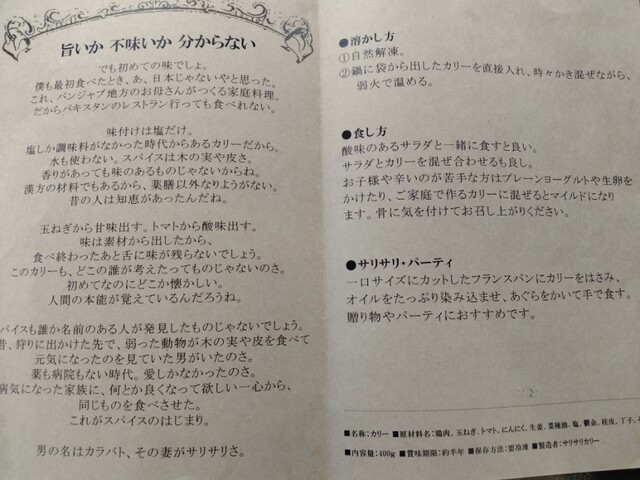 旨いか 不味いか 分からない
でも初めての味でしょ。
僕も最初食べたとき、あ、日本じゃないやと思った。
これ、パンジャブ地方のお母さんがつくる家庭料理。
だからパキスタンのレストラン行っても食べれない。
味付けは塩だけ。
塩しか調味料がなかった時代からあるカリーだから。
水も使わない。スパイスは木の実や皮さ。
香りがあっても味のあるものじゃないからね。
漢方の材料でもあるから、薬膳以外なりようがない。
昔の人は知恵があったんだね。
玉ねぎから甘味出す。トマトから酸味出す。
味は素材から出したから、
食べ終わったあと舌に味が残らないでしょう。
このカリーも、どこの誰が考えたってものじゃないのさ。
初めてなのにどこか懐かしい。
人間の本能が覚えているんだろうね。
パイスも誰か名前のある人が発見したものじゃないでしょう。
昔、狩りに出かけた先で、弱った動物が木の実や皮を食べて
元気になったのを見ていた男がいたのさ。
薬も病院もない時代。愛しかなかったのさ。
病気になった家族に、何とか良くなって欲しい一心から、
同じものを食べさせた。
これがスパイスのはじまり。
男の名はカラバト、その妻がサリサリさ。
●溶かし方
①自然解凍。
②鍋に袋から出したカリーを直接入れ、時々かき混ぜながら、
弱火で温める。
●食し方
酸味のあるサラダと一緒に食すと良い。
サラダとカリーを混ぜ合わせるも良し。
お子様や辛いのが苦手な方はプレーンヨーグルトや生卵を
かけたり、ご家庭で作るカリーに混ぜるとマイルドになり
ます。骨に気を付けてお召し上がりください。
●サリサリ・パーティ
一口サイズにカットしたフランスパンにカリーをはさみ、
オイルをたっぷり染み込ませ、あぐらをかいて手で食す。
贈り物やパーティにおすすめです。
■名称:カリー ■原材料名:鶏肉、玉ねぎ、トマト、にんにく、生姜、菜種油、塩、鬱金、桂皮、丁子、
■内容量:400g ■賞味期限:約半年 ■保存方法:要冷凍 ■製造者:サリサリカリー